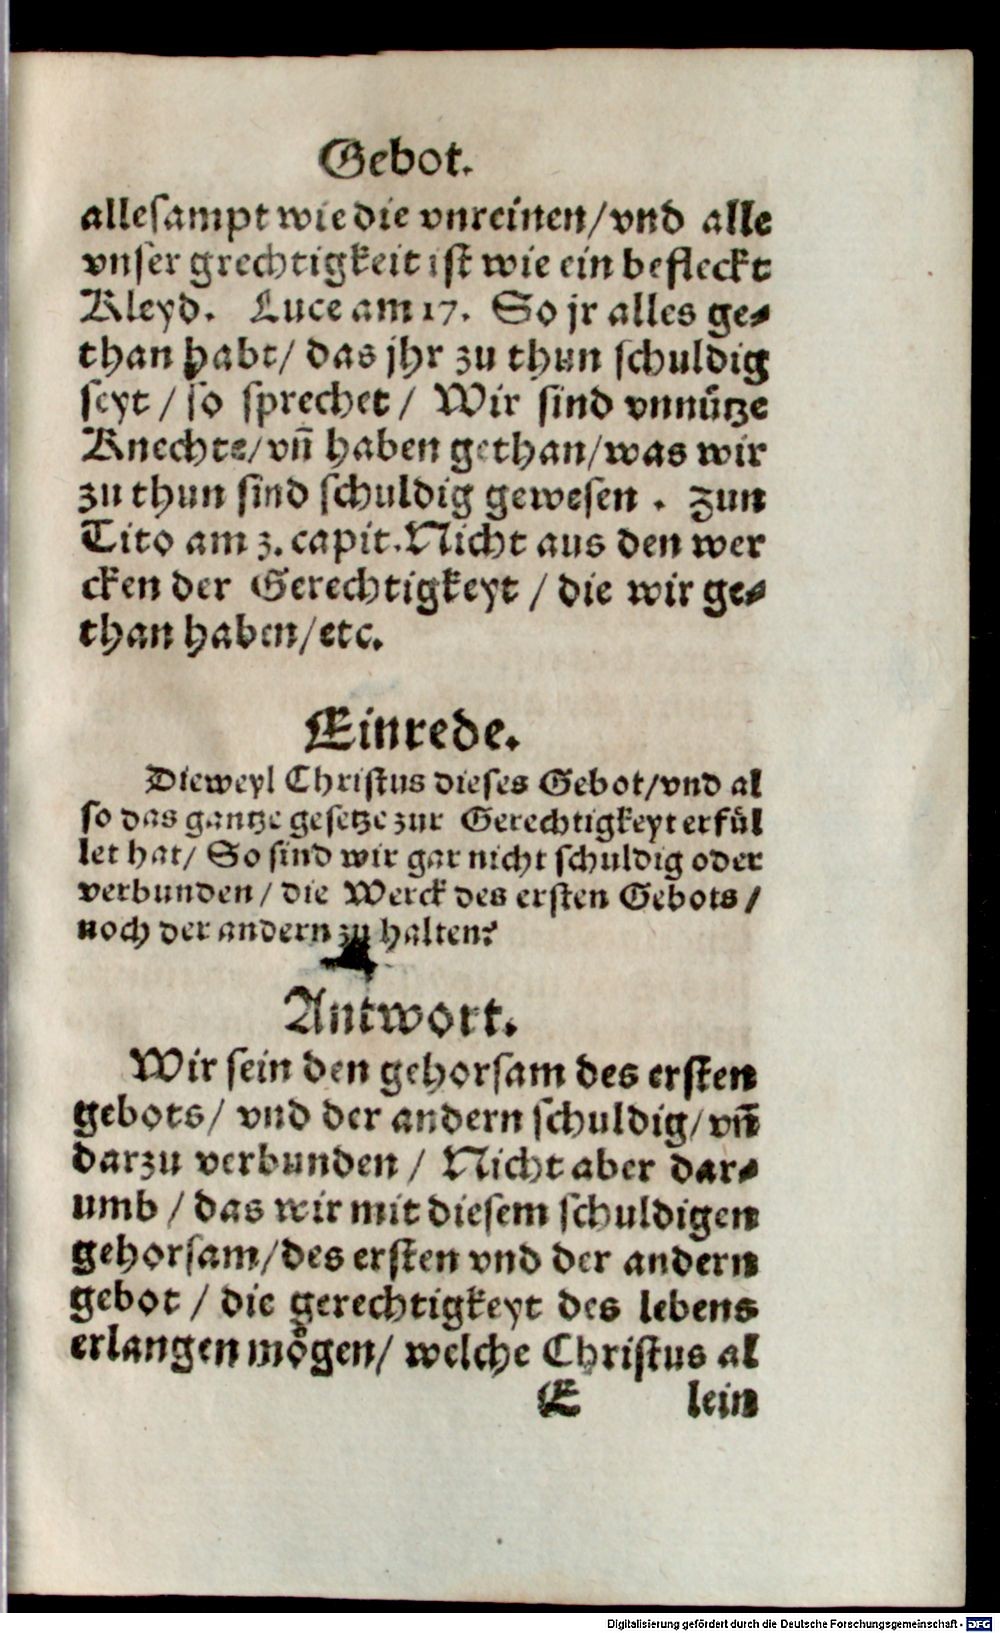 Gebot.
allesampt wie die vnreinen/vnd alle
vnser grechtigkeit ist wie ein befleckt
Kleyd. Luce am 17. So jr alles ge-
than habt/ das jhr zu thun schuldig
seyt / so sprechet / Wir sind vnnuͤtze
Knechte/vñ haben gethan/was wir
zu thun sind schuldig gewesen . Zun
Tito am 3. capit. Nicht aus den wer
cken der Gerechtigkeyt / die wir ge-
than haben/etc.
Einrede.
Dieweyl Christus dieses Gebot/vnd al
so das gantze gesetze zur Gerechtigkeyt erfuͤl
let hat/ So sind wir gar nicht schuldig oder
verbunden / die Werck des ersten Gebots /
noch der andern zu halten?
Antwort.
Wir sein den gehorsam des ersten
gebots/ vnd der andern schuldig/vñ
darzu verbunden / Nicht aber dar-
umb / das wir mit diesem schuldigen
gehorsam/des ersten vnd der andern
gebot / die gerechtigkeyt des lebens
erlangen moͤgen/ welche Christus al
E lein
Digitalisierung gefördert durch die Deutsche Forschungsgemeinschaft - DFG